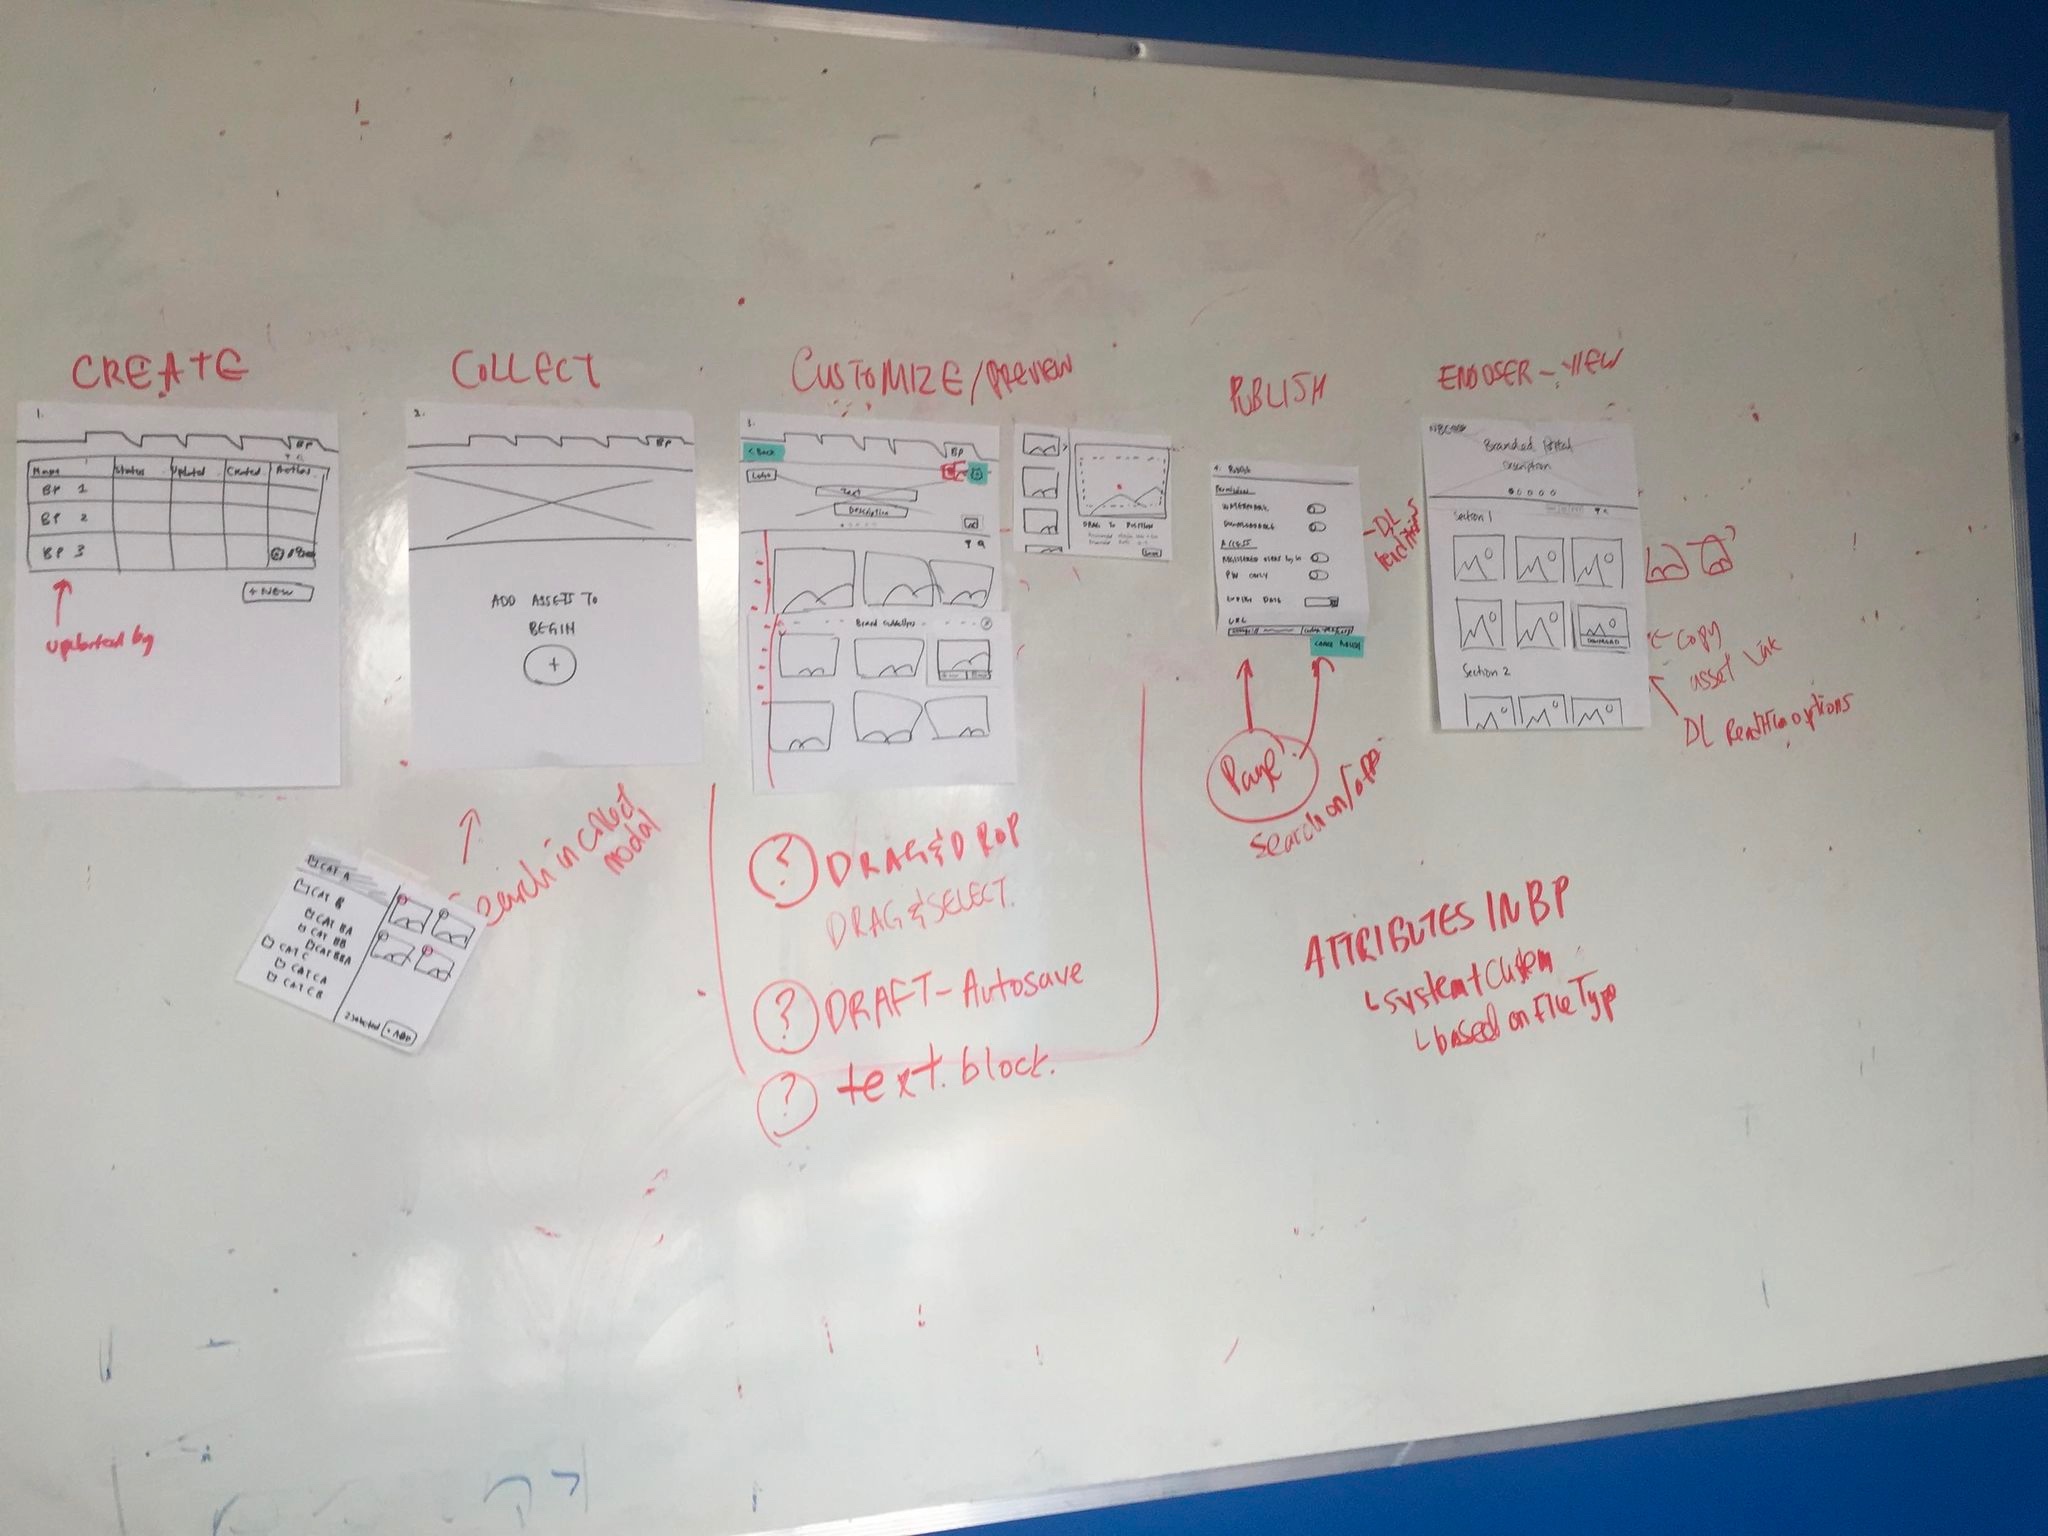 CREATE
1.
BP
Name Status Updated Created Actions
BP 1
BP 2
BP 3
+ NEW
updated by
COLLECT
2.
BP
ADD ASSETS TO
BEGIN
+
Search in collect
modal
CAT A
CAT B
CAT BA
CAT BB
CAT BBA
CAT C
CAT CA
CAT CB
2 selected + ADD
CUSTOMIZE/PREVIEW
3.
< Back
BP
Logo
Text
Description
Brand Guidelines
DRAG TO POSITION
? DRAG & DROP
DRAG & SELECT.
? DRAFT - Autosave
? text block.
PUBLISH
4. Publish
Permissions
WATERMARK
DOWNLOADABLE
ACCESS
REGISTERED USERS
PW ONLY
EXPIRY DATE
URL
- DL
Page
Search on/off
ATTRIBUTES IN BP
system + custom
based on File Type
ENDUSER - VIEW
Branded Portal
Description
Section 1
DOWNLOAD
Section 2
← Copy
asset link
DL Rendition options